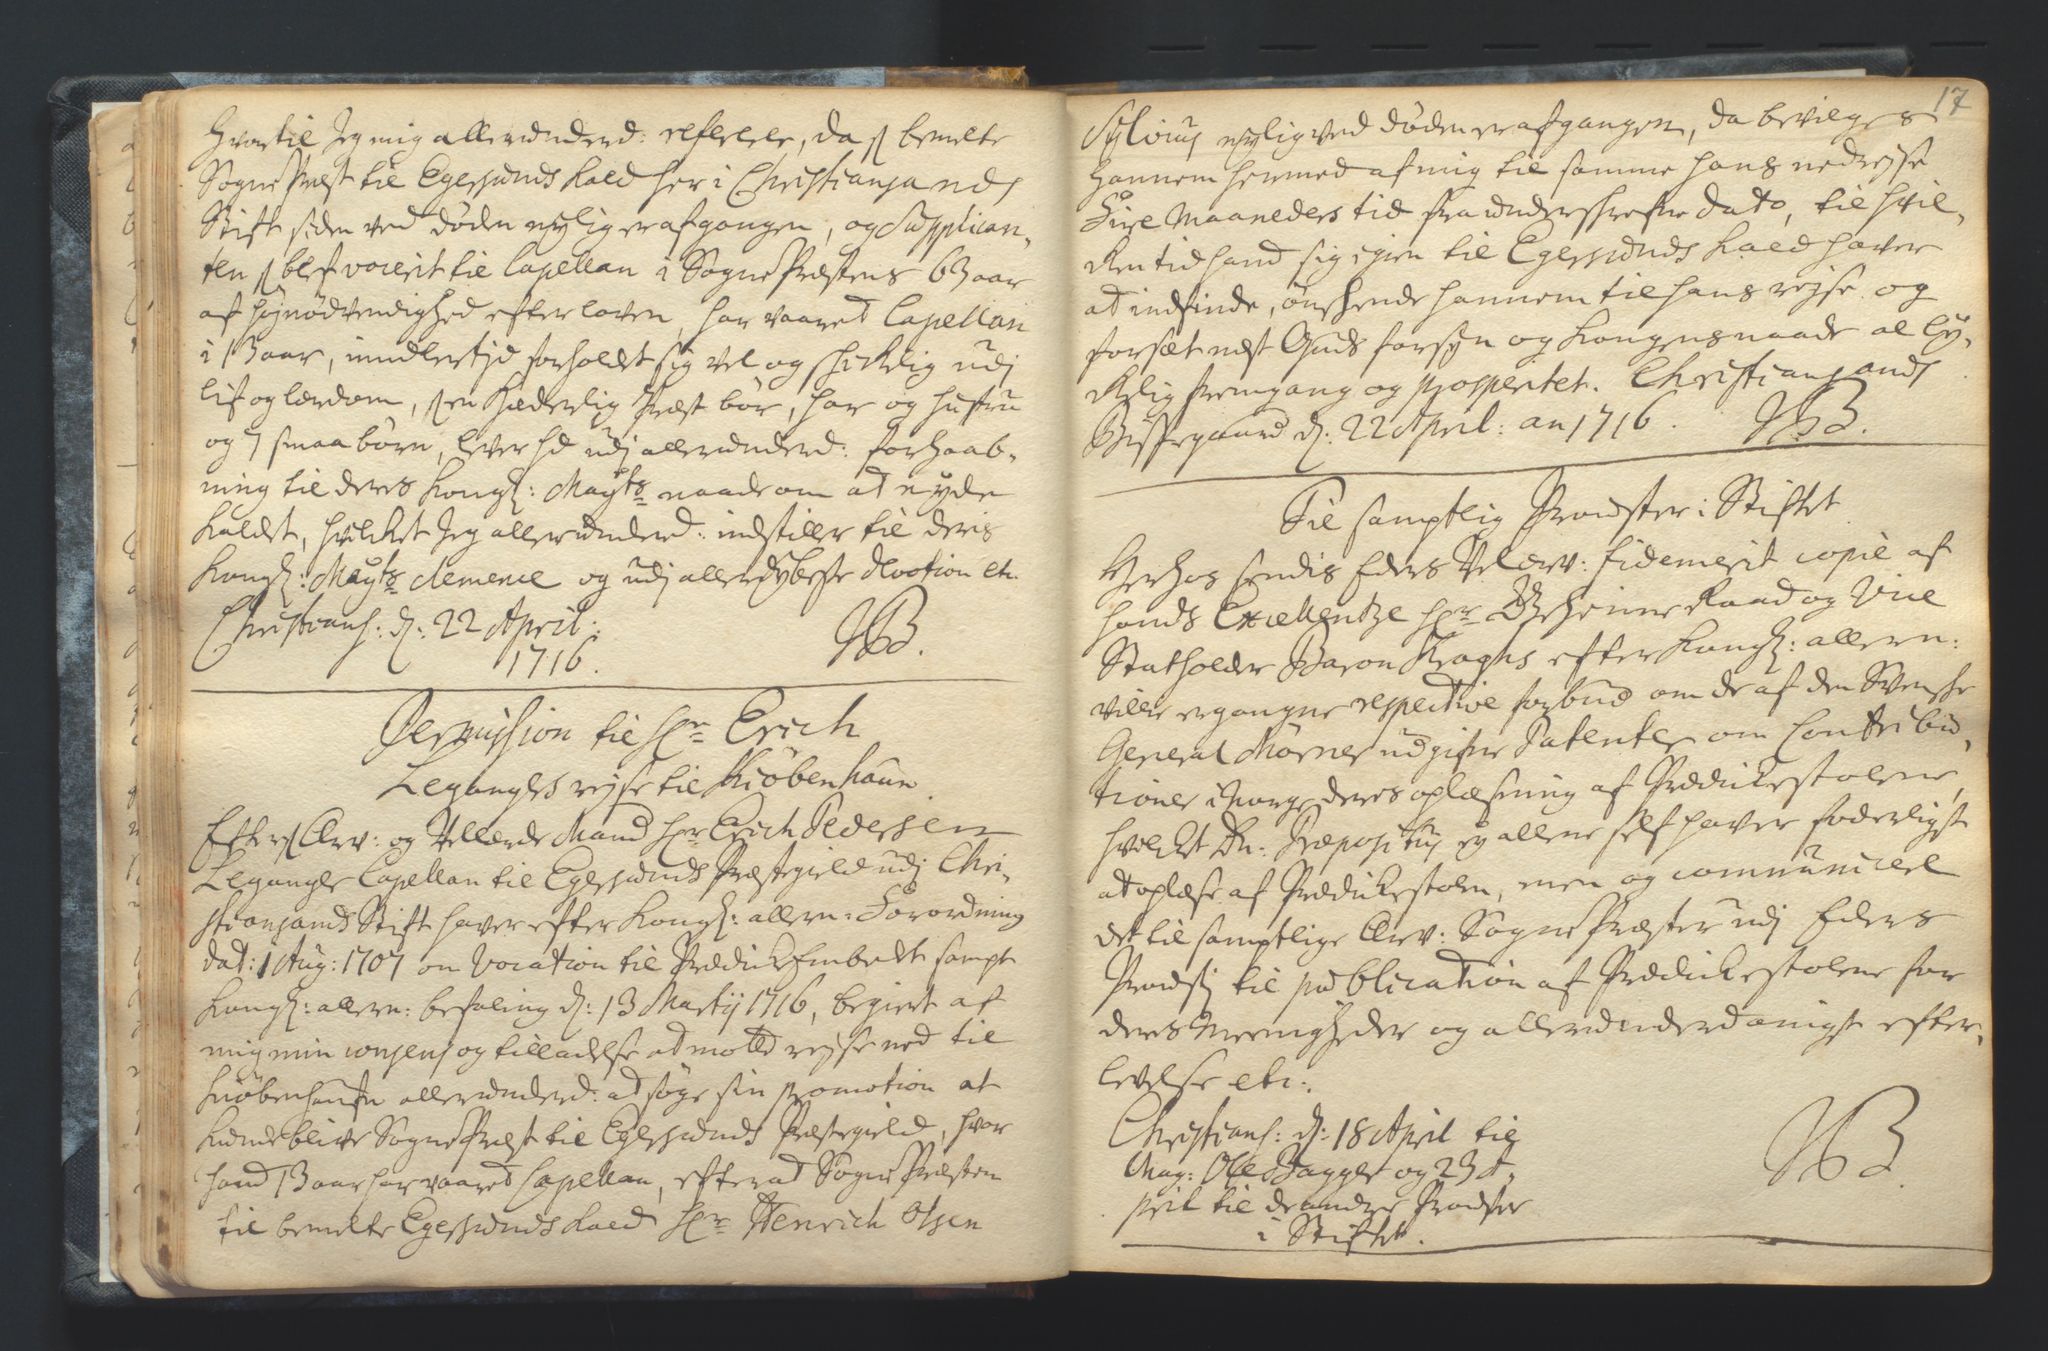 hvortil Jeg mig allerunderd: refferere, da s bemelte
Sogne Præst til Egersunds Kald her i Christiansands
Stift siden ved døden nylig er afgangen, og Supplican-
ten s blef voceret til Capellan i Sogne Præstens 63 aar
af højnødvendighed efter loven, har været Capellan
i 13 aar, imidlertjd forholdt sig vel og skickelig udj
lif og lærdom, s en hæderlig Præst bør, har og hustru
og 7 smaa børn, lever hd udj allerunderd: forhaab-
ning til deres Kongl: Mayts naade om at nyde
Kaldet, hvilcket Jeg allerunderd: indstiller til deris
Kongl: Mayts clemence og udj allerdybeste devotion etc.
Christians: d: 22 April:
1716.
JB.
Permission til Hr Erich
Legangers rejse til Kiöbenhaun.
Efters Ærv: og Vellærde Mand Hr Erich Pedersen
Leganger Capellan til Egersunds Præstegield udj Chri-
stiansands Stift haver efter Kongl: allern: Forordning
dat: 1 Aug: 1707 om Vocation til Prædicke Embedet sampt
Kongl: allern: befaling d: 13 Martij 1716, begiert af
mig min consens og tilladelse at motte rejse ned til
Kiöbenhaufn allerunderd: at søge sin promotion at
kunde blive Sogne Præst til Egersunds Præstegield, hvor
hand 13 aar har været Capellan, efter at Sogne Præsten
til bemelte Egersunds Kald Hr Henrich Olsen
17
Sylvius nylig ved døden er afgangen, da bevilges
hannem hermed af mig til samme hans nedrejse
Fire Maaneders tid fra underskrefne dato, til hvil-
cken tid hand sig igien til Egersunds Kald haver
at indfinde, ønskende hannem til hans rejse og
forsæt næst Guds forsyn og Kongens naade al ly-
ckelig fremgang og prosperitet. Christiansands
Bispegaard d: 22 April: an 1716.
JB.
Til samptlig Provster i Stiftet
Herhos sendis Eders Velærv: fidemerit copie af
hands Excellentze Hr Geheime Raad og Vice
Statholder Baron Kraghs efter Kongl: allern:
villie ergangne respective forbud om de af den Svenske
General Mörner udgifne Patenter om Contribu-
tioner i Norge deres oplæsning af Prædickestolene,
hvilcket Dn: Præpositus ey allene self haver foderligst
at oplæse af Prædickestolen, men og communicere
det til samptlige Ærv: Sogne Præster udj Eders
Provstj til publication af Prædickestolene for
deres Meenigheder og allerunderdanigst efter-
levelse etc:
Christians: d: 18 April til
Mag: Ole Bagger og 23 A-
pril til de andre Provster
i Stiftet.
JB.